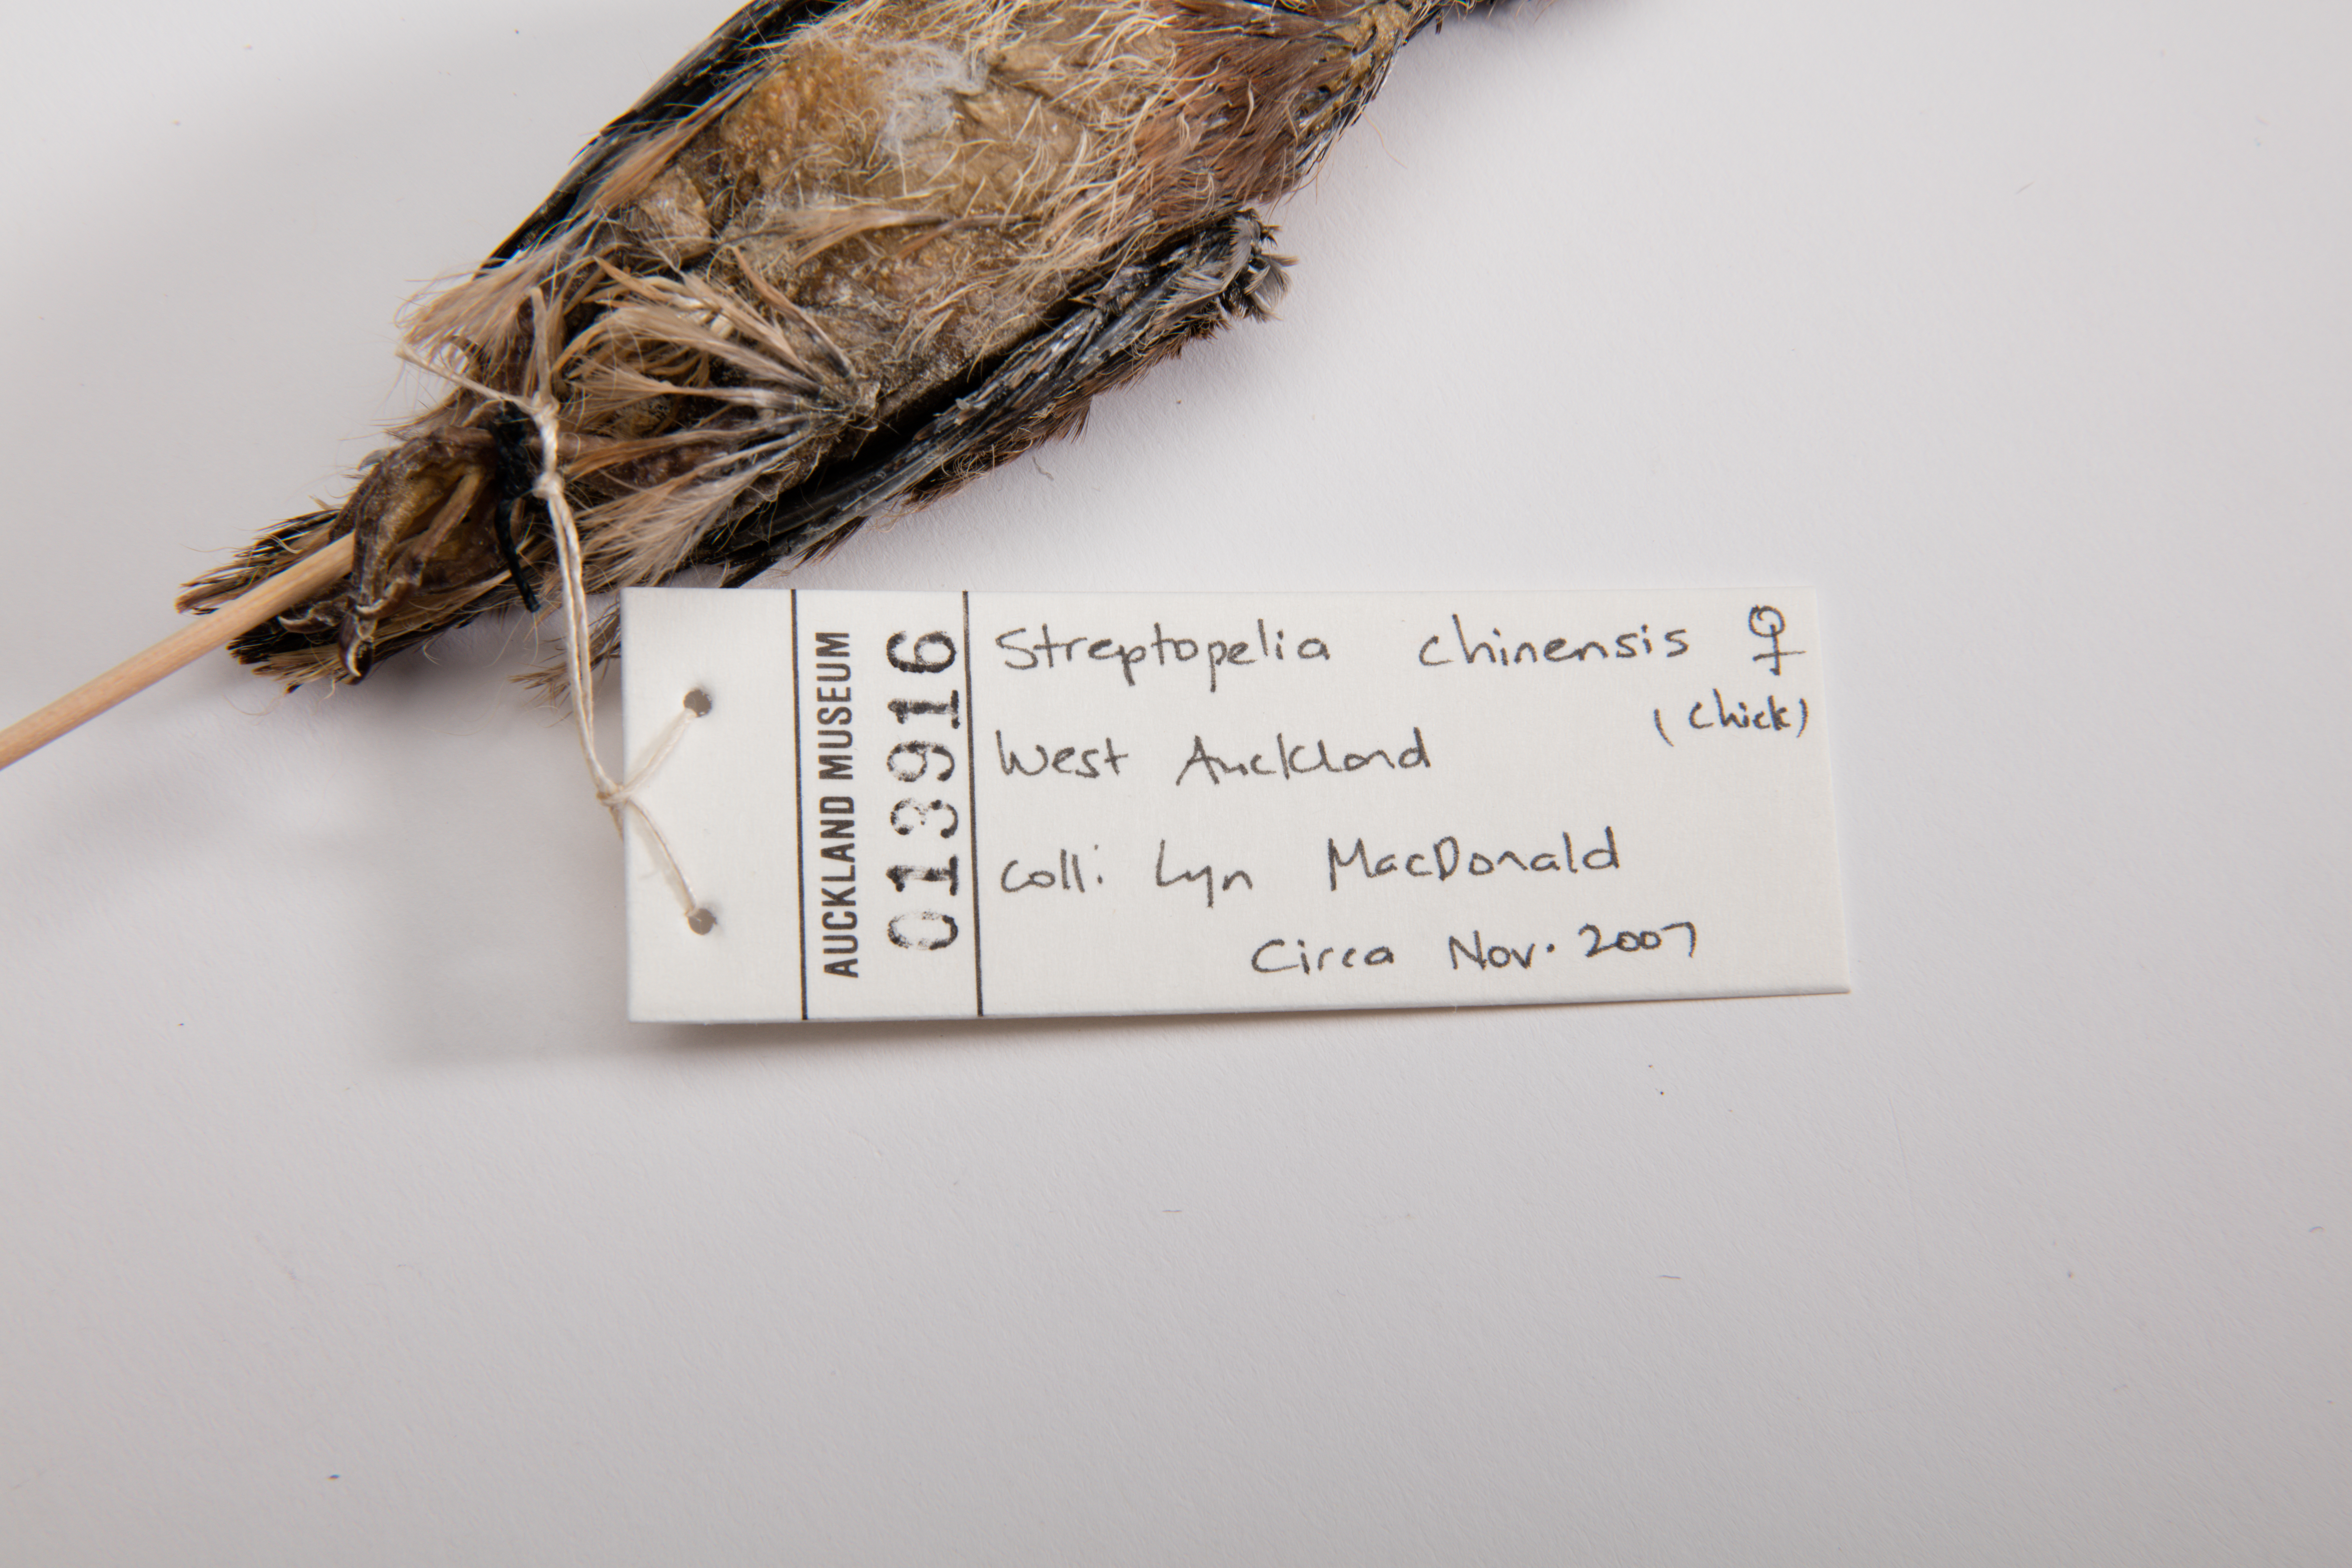 AUCKLAND MUSEUM
013916
Streptopelia chinensis ♀
(Chick)
West Auckland
Coll: Lyn MacDonald
Circa Nov. 2007